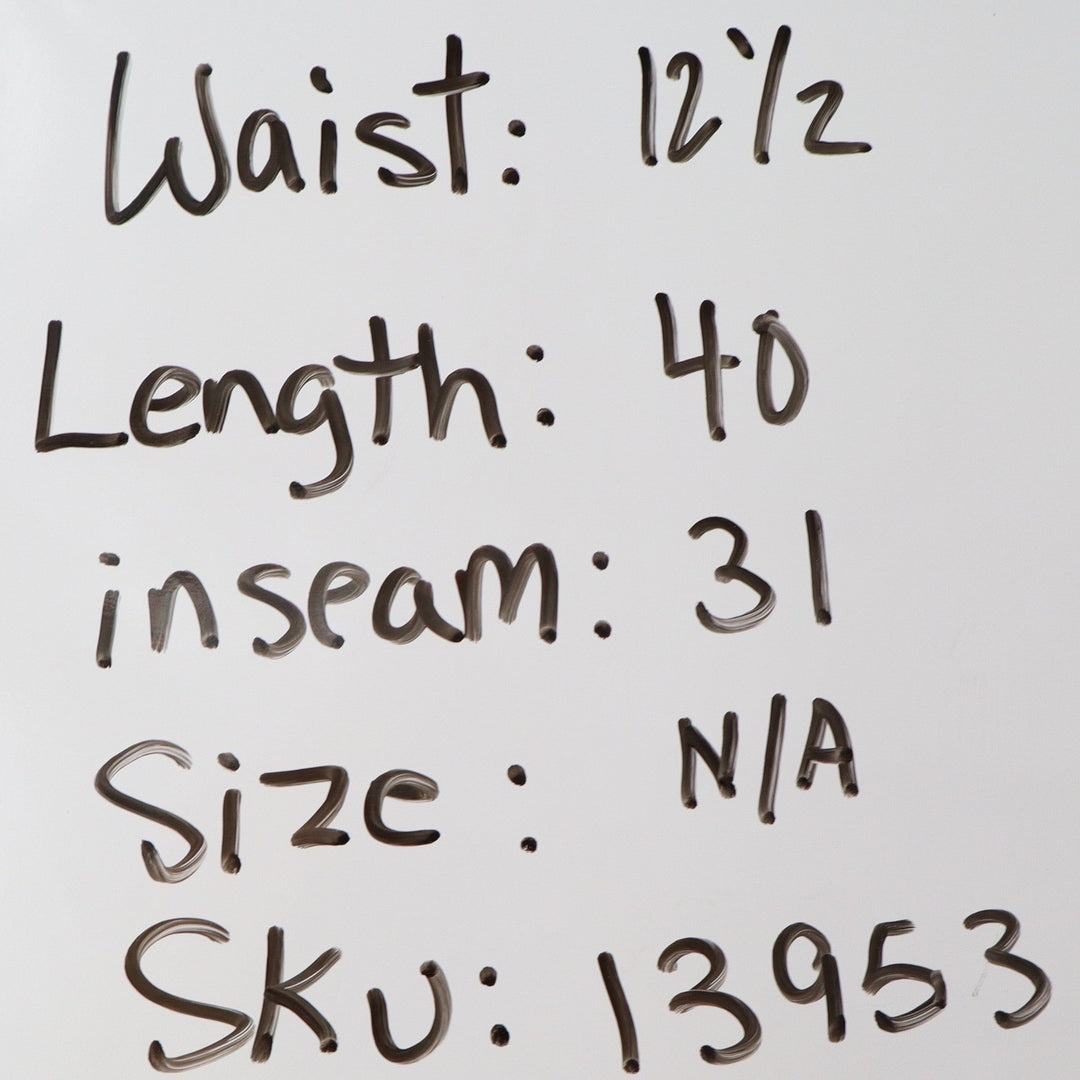 Waist: 12 1/2
Length: 40
inseam: 31
Size: N/A
SKU: 13953